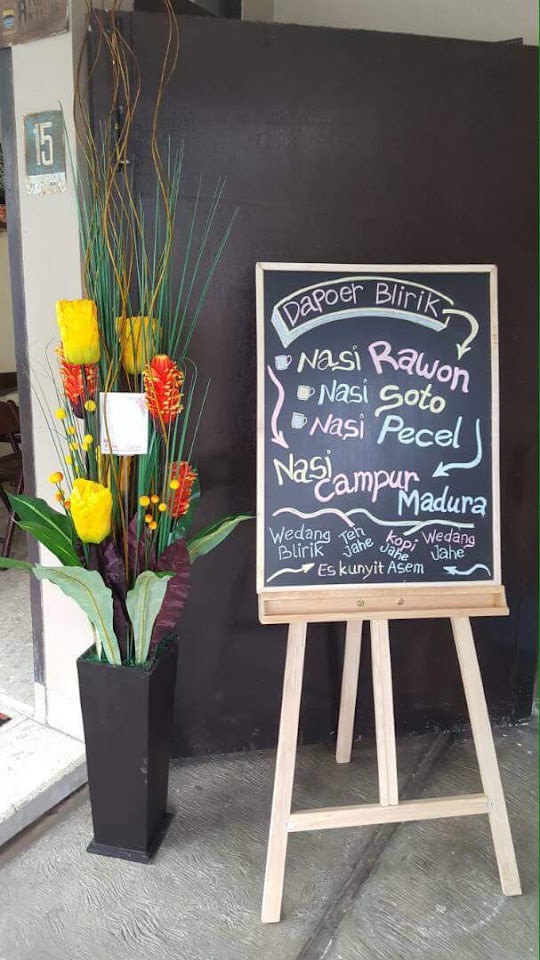 15
Dapoer Blirik
Nasi Rawon
Nasi Soto
Nasi Pecel
Nasi Campur Madura
Wedang Blirik
Teh Jahe
Kopi Jahe
Wedang Jahe
Es kunyit Asem